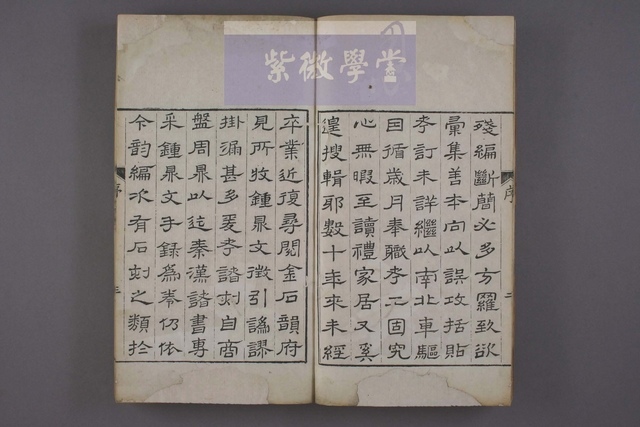 紫微學堂
序 二
殘編斷簡必多方羅致欲
彙集善本向以誤攻括貼
考訂未詳繼以南北車驅
因循歲月奉職考工固究
心無暇至讀禮家居又奚
遑搜輯耶數十年來未經
卒業近復尋閱金石韻府
見所收鍾鼎文徵引譌謬
掛漏甚多爰考諸刻自商
盤周鼎以迄秦漢諸書專
采鍾鼎文手錄為卷仍依
今韵編次有石刻之類於
序 三